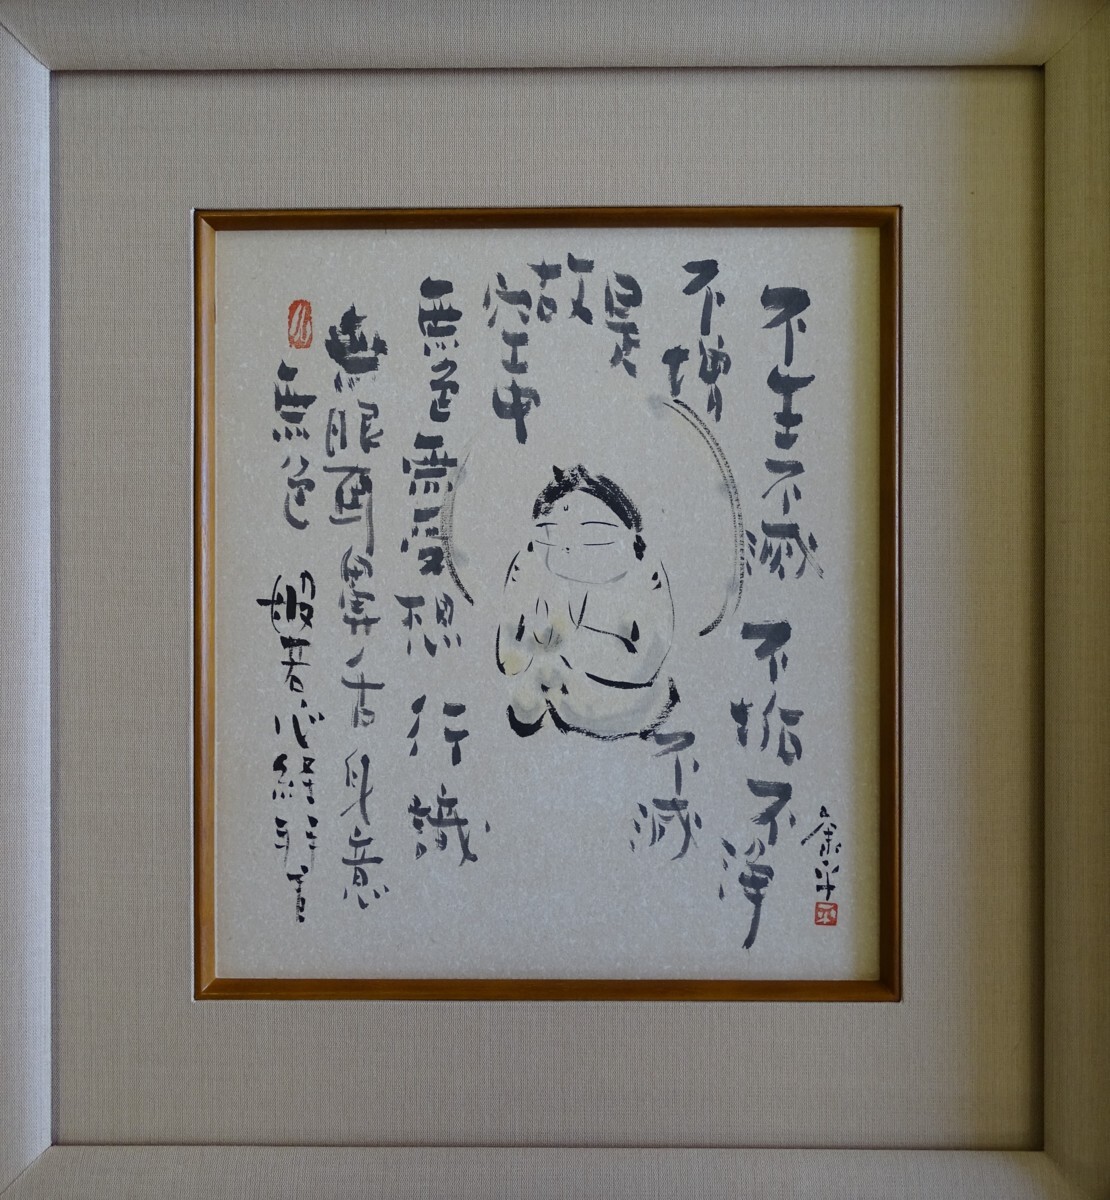 不生不滅不垢不浄
不増不減
是
故
空中
無色無受想行識
無眼耳鼻舌身意
無色 般若心経